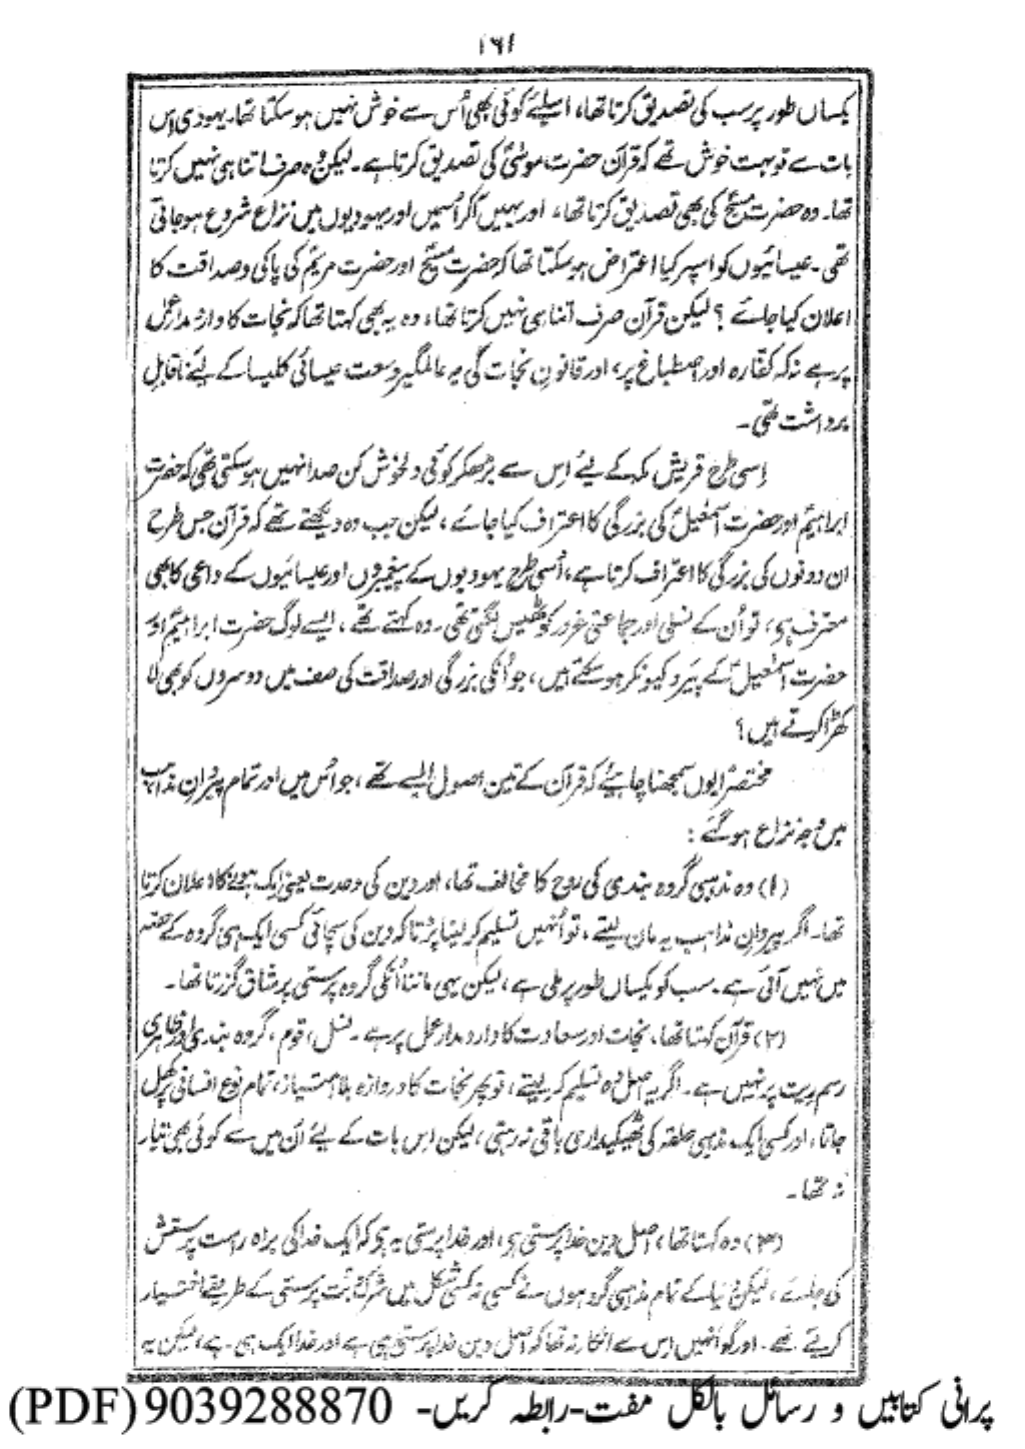 ۱۶۱
یکساں طور پر سب کی تصدیق کرتا تھا، اسلئے کوئی بھی اُس سے خوش نہیں ہو سکتا تھا۔ یہودی اِس
بات سے تو بہت خوش تھے کہ قرآن حضرت موسیٰؑ کی تصدیق کرتا ہے۔ لیکن وہ صرف اتنا ہی نہیں کرتا
تھا۔ وہ حضرت مسیحؑ کی بھی تصدیق کرتا تھا، اور یہیں آکر اُسمیں اور یہودیوں میں نزاع شروع ہوجاتی
تھی۔ عیسائیوں کو اسپر کیا اعتراض ہو سکتا تھا کہ حضرت مسیحؑ اور حضرت مریمؑ کی پاکی وصداقت کا
اعلان کیا جائے؟ لیکن قرآن صرف اتنا ہی نہیں کرتا تھا، وہ یہ بھی کہتا تھا کہ نجات کا دارومدار عمل
پر ہے نہ کہ کفّارہ اور اصطباغ پر، اور قانونِ نجات کی یہ عالمگیر وسعت عیسائی کلیسا کے لئے ناقابلِ
برداشت تھی۔
اِسی طرح قریش مکہ کے لیے اِس سے بڑھکر کوئی دلخوش کن صدا نہیں ہوسکتی تھی کہ حضرت
ابراہیمؑ اور حضرت اسمٰعیلؑ کی بزرگی کا اعتراف کیا جائے، لیکن جب وہ دیکھتے تھے کہ قرآن جس طرح
ان دونوں کی بزرگی کا اعتراف کرتا ہے، اُسی طرح یہودیوں کے پیغمبروں اور عیسائیوں کے داعی کا بھی
معترف ہی، تو اُن کے نسلی اور جماعتی غرور کو ٹھیس لگتی تھی۔ وہ کہتے تھے، ایسے لوگ حضرت ابراہیمؑ اور
حضرت اسمٰعیلؑ کے پَیرو کیونکر ہو سکتے ہیں، جو اُنکی بزرگی اور صداقت کی صف میں دوسروں کو بھی لا
کھڑا کرتے ہیں؟
مختصرًا یوں سمجھنا چاہیئے کہ قرآن کے تین اصول ایسے تھے، جو اُس میں اور تمام پیروانِ مذاہب
میں وجہ نزاع ہو گئے:
(۱) وہ مذہبی گروہ بندی کی روح کا مخالف تھا، اور دین کی وحدت یعنی ایک ہونے کا اعلان کرتا
تھا۔ اگر پیروانِ مذاہب یہ مان لیتے، تو اُنہیں تسلیم کر لینا پڑتا کہ دین کی سچائی کسی ایک ہی گروہ کے حصّہ
میں نہیں آئی ہے۔ سب کو یکساں طور پر ملی ہے، لیکن یہی ماننا اُنکی گروہ پرستی پر شاق گزرتا تھا۔
(۲) قرآن کہتا تھا، نجات اور سعادت کا دارومدار عمل پر ہے۔ نسل، قوم، گروہ بندی اور ظاہری
رسم ریت پر نہیں ہے۔ اگر یہ اصل وہ تسلیم کر لیتے، تو پھر نجات کا دروازہ بلا امتیاز، تمام نوع انسانی پر کھل
جاتا، اور کسی ایک مذہبی حلقہ کی ٹھیکیداری باقی نہ رہتی، لیکن اِس بات کے لیے اُن میں سے کوئی بھی تیار
نہ تھا۔
(۳) وہ کہتا تھا، اصل دین خدا پرستی ہی، اور خدا پرستی یہ ہی کہ ایک خدا کی براہ راست پرستش
کی جائے، لیکن دُنیا کے تمام مذہبی گروہوں نے کسی نہ کسی شکل میں شرک و بُت پرستی کے طریقے اختیار
کر لیے تھے۔ اور گو اُنہیں اِس سے انکار نہ تھا کہ اصل دین خدا پرستی ہی ہے اور خدا ایک ہی ہے، لیکن یہ
پرانی کتابیں و رسائل بالکل مفت-رابطہ کریں- 9039288870 (PDF)